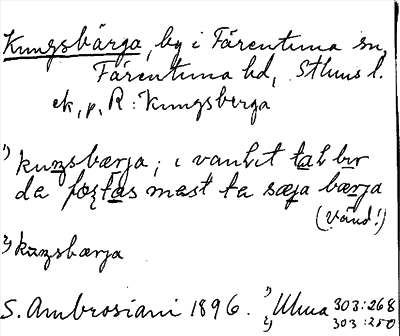 Kungsbärga, by i Färentuna sn,
Färentuna hd, Sthms l.
ek, p, R: Kungsberga
1) kuŋsbærja; i vanlit tal bir
de fo̤ṣtas mæst ta sæja bærja
(Vänd!)
2) kuŋsbærja
S. Ambrosiani 1896. 1) Ulma 303:268
2) 303:250